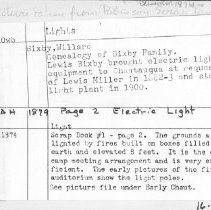 Lights
Bixby, Willard
Genealogy of Bixby Family.
Lewis Bixby brought electric ligh
equipment to Chautauqua at reques
of Lewis Miller in 1882-3 and sta
light plant in 1900.
1879 Page 2 Electric Light
Light
1879 Scrap Book #1 - page 2. The grounds a
lighted by fires built on boxes filled
earth and elevated 8 feet. It is the o
camp meeting arrangement and is very ef
ficient. The early pictures of the fir
auditorium show the light poles.
See picture file under Early Chaut.
16-